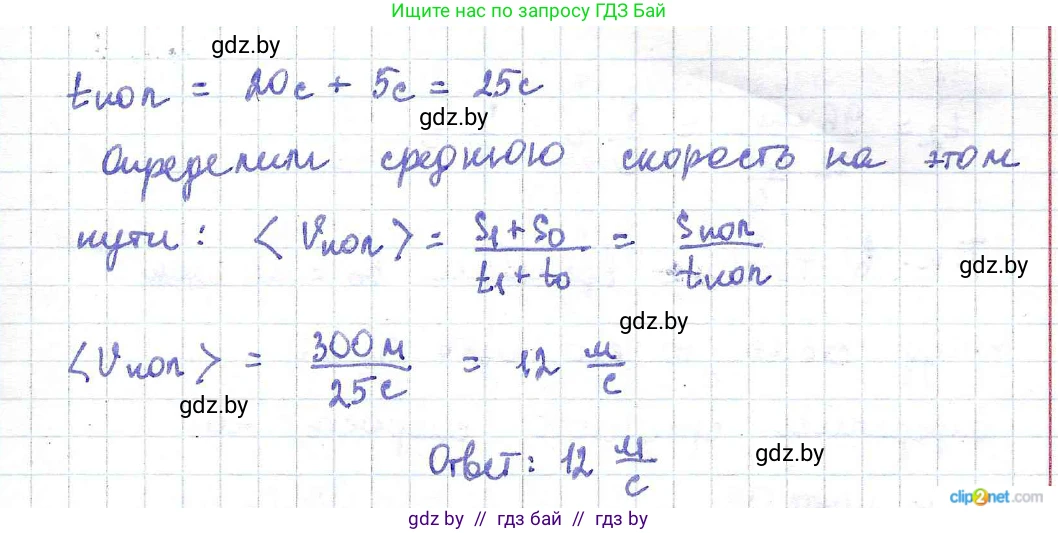 Ищите нас по запросу ГДЗ Бай
gdz.by
tкол = 20с + 5с = 25с
gdz.by
Определим среднюю скорость на этом
пути: <Vкол> = S₁+S₀ / t₁+t₀ = Sкол / tкол
gdz.by
gdz.by
<Vкол> = 300м / 25с = 12 м/с
gdz.by
Ответ: 12 м/с
gdz.by
clip2net.com
gdz by // гдз бай // гдз by